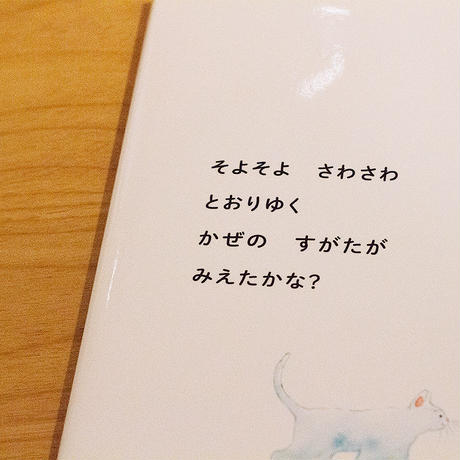 そよそよ　さわさわ
とおりゆく
かぜの　すがたが
みえたかな?